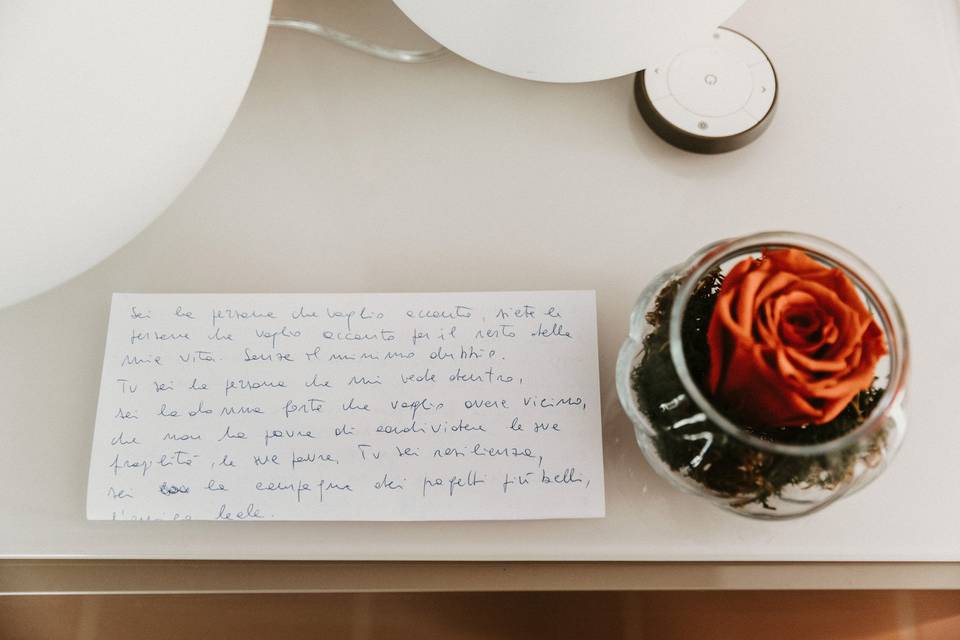 Sei la persona che voglio accanto, siete le
persone che voglio accanto per il resto della
mia vita. Senza il minimo dubbio.
Tu sei la persona che mi vede dentro,
sei la donna forte che voglio avere vicino,
che non ha paura di condividere le sue
fragilità, le sue paure. Tu sei resilienza,
sei la compagna dei progetti più belli,
l'amica leale.